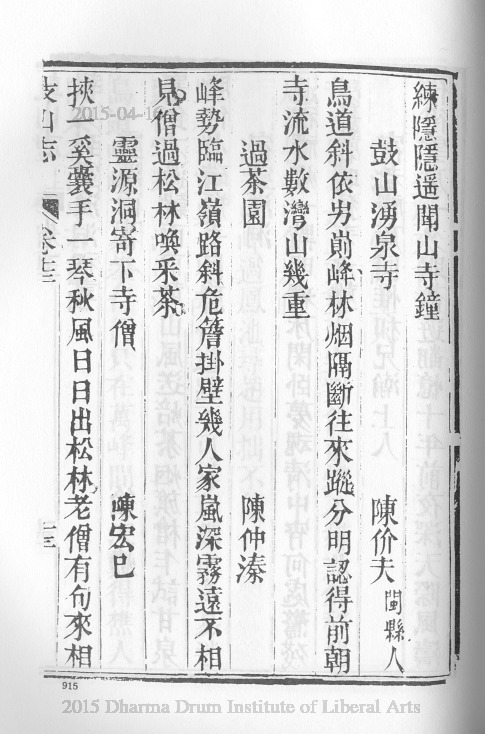 練隱隱遥聞山寺鐘
鼓山湧泉寺 陳价夫 閩縣人
鳥道斜依屴崱峰林烟隔斷往來蹤分明認得前朝
寺流水數灣山幾重
過茶園 陳仲溱
峰勢臨江嶺路斜危簷掛壁幾人家嵐深霧遠不相
見僧過松林喚采茶
靈源洞寄下寺僧 陳宏已
挾一奚囊手一琴秋風日日出松林老僧有句來相
鼓山志 卷十三 十三
915
2015-04-16
2015 Dharma Drum Institute of Liberal Arts